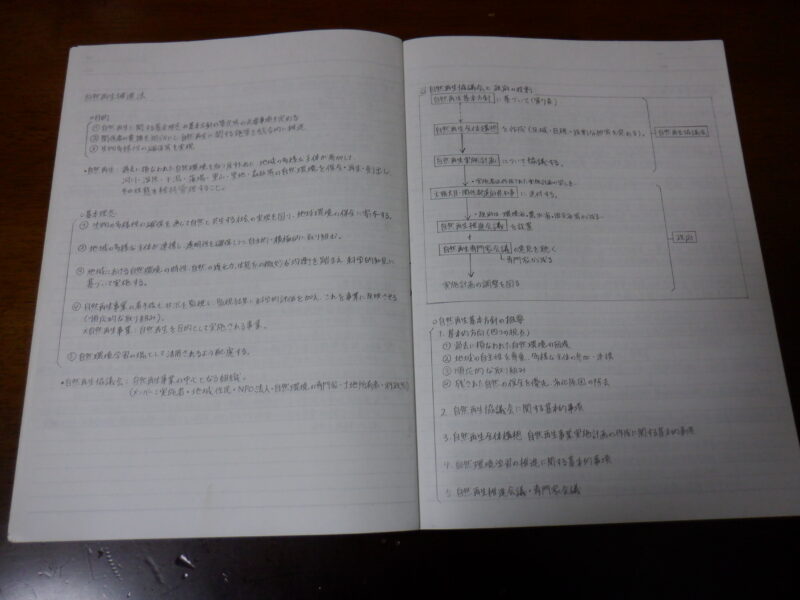 自然再生推進法
○目的
① 自然再生に関する基本理念や基本方針の策定他の必要事項を定める
② 関係者の責務を明らかにし自然再生に関する施策を総合的に推進
③ 生物多様性の確保等を実現
・自然再生：過去に損なわれた自然環境を取り戻すため、地域の多様な主体が参加し、
河川・湿原・干潟・藻場・里山・里地・森林等の自然環境を保全・再生・創出し、
その状態を維持管理すること。
○基本理念
① 生物の多様性の確保を通して自然と共生する社会の実現を図り、地球環境の保全に寄与する。
② 地域の多様な主体が連携し、透明性を確保しつつ自主的・積極的に取り組む。
③ 地域における自然環境の特性、自然の復元力、生態系の微妙な均衡を踏まえ、科学的知見に
基づいて実施する。
④ 自然再生事業の着手後もその状況を監視し、監視結果に科学的評価を加え、これを事業に反映させる
(順応的な取り組み)。
※自然再生事業：自然再生を目的として実施される事業。
⑤ 自然環境学習の場として活用されるよう配慮する。
・自然再生協議会：自然再生事業の中心となる組織。
(メンバー：実施者・地域住民・NPO法人・自然環境の専門家・土地所有者・
○自然再生協議会と政府の役割
自然再生基本方針 に基づいて
自然再生全体構想 を作成
自然再生協議会
自然再生事業実施計画 について協議する。
主務大臣・関係都道府県知事 に送付する。
自然再生推進会議 を設置
政府
自然再生専門家会議 の意見を聴く
実施計画の調整を図る
○自然再生基本方針の概要
1. 基本的方向（四つの視点）
① 過去に損なわれた自然環境の回復
② 地域の自主性を尊重、多様な主体の参加・連携
③ 順応的な取り組み
④ 残された自然の保全を優先、劣化要因の除去
2. 自然再生協議会に関する基本的事項
3. 自然再生全体構想、自然再生事業実施計画の作成に関する基本的事項
4. 自然環境学習の推進に関する基本的事項
5. 自然再生推進会議・専門家会議